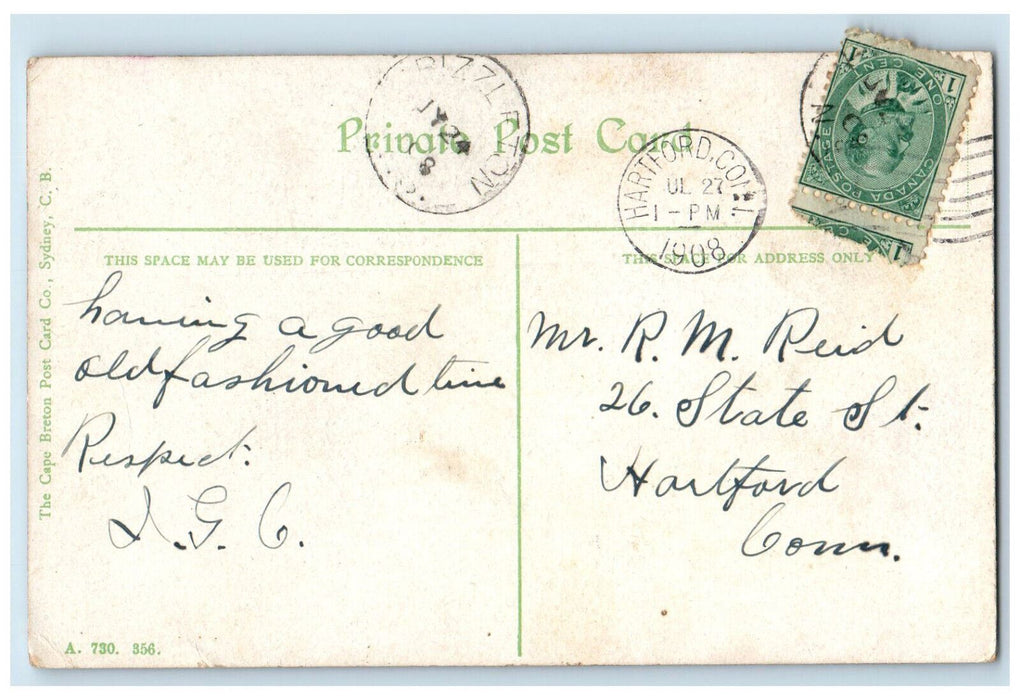 Private Post Card
HARTFORD, CONN
JUL 27
1-PM
1908
ONE CENT
CANADA POSTAGE
1
1
The Cape Breton Post Card Co., Sydney, C. B.
THIS SPACE MAY BE USED FOR CORRESPONDENCE
THIS SPACE FOR ADDRESS ONLY
having a good
old fashioned time
Respect.
I. G. C.
Mr. R. M. Reid
26. State St.
Hartford
Conn.
A. 730. 356.